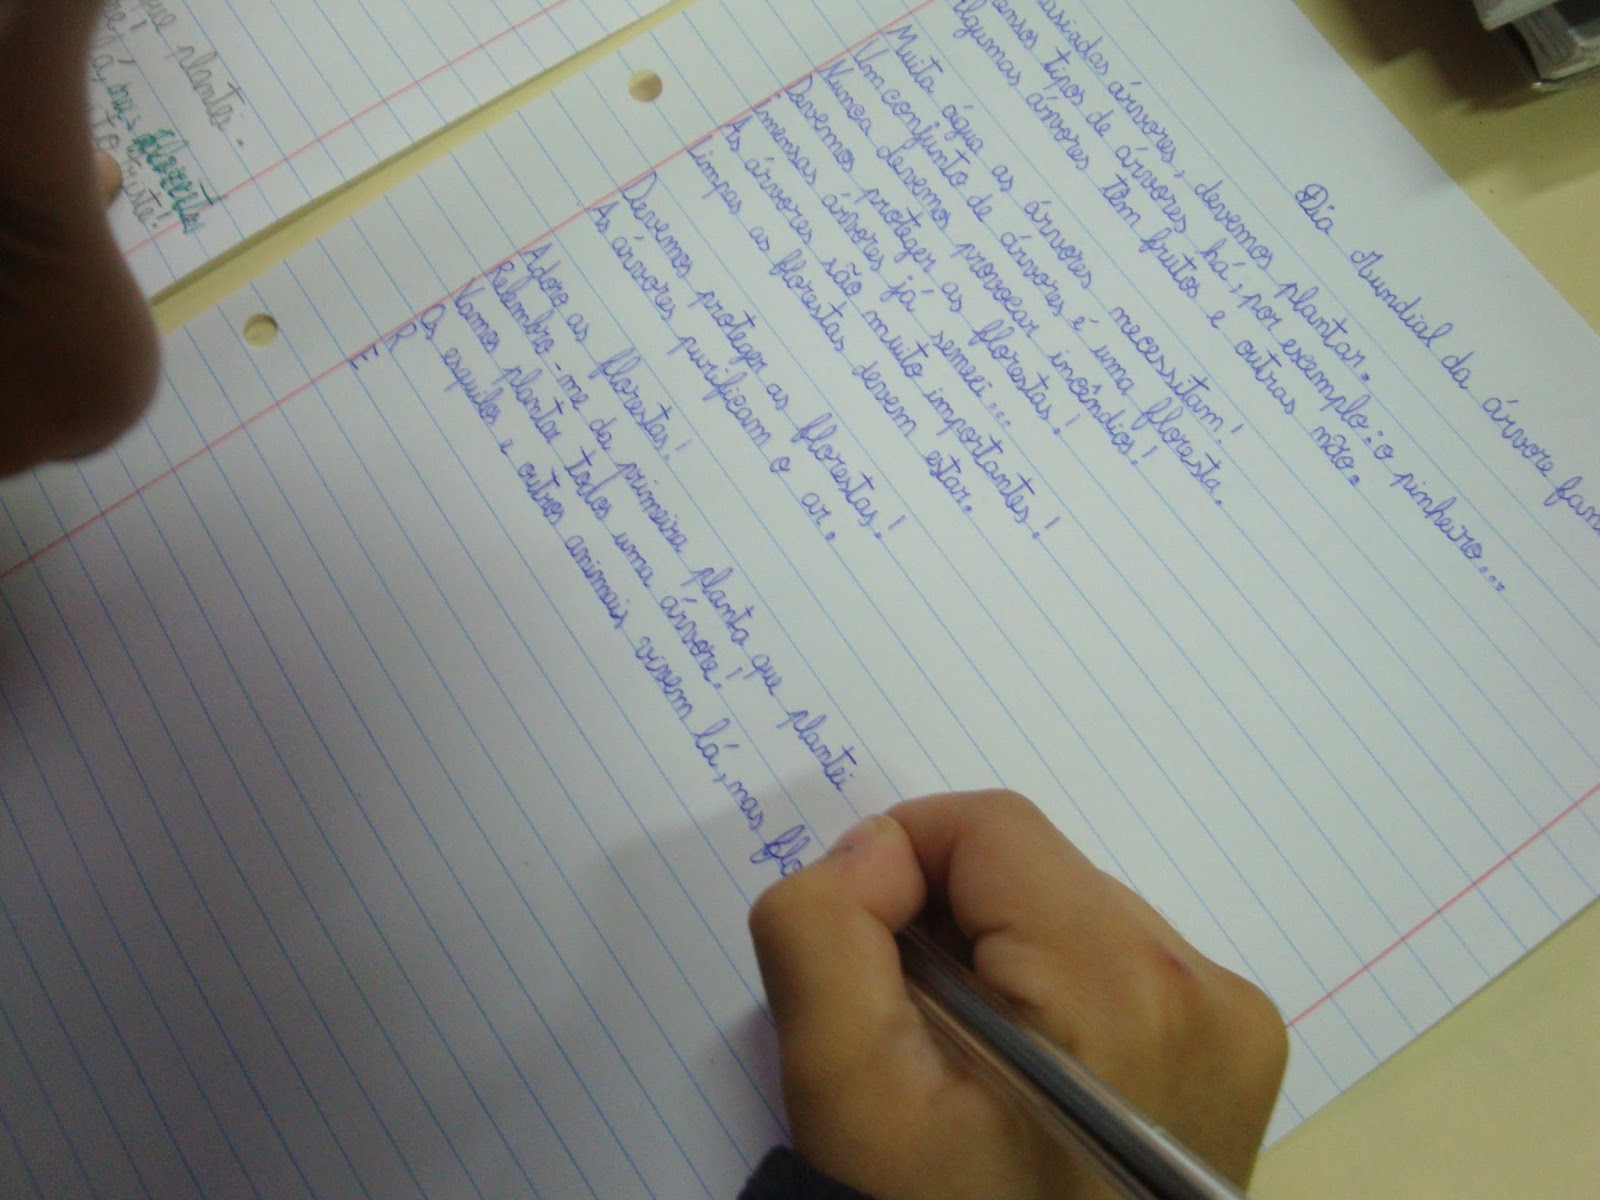 Dia Mundial da árvore
asiadas árvores, devemos plantar.
ensos tipos de árvores há, por escemplo: o pinheiro...
Algumas árvores têm frutos e outras não.
Muita água as árvores necessitam!
Um conjunto de árvores é uma floresta.
Nunca devemos provocar incêndios!
Devemos proteger as florestas!
Imensas árvores já semeei...
As árvores são muito importantes!
Limpas as florestas devem estar.
Devemos proteger as florestas!
As árvores purificam o ar.
Adoro as florestas!
Relembro-me da primeira planta que plantei
Vamos plantar todos uma árvore!
Os esquilos e outros animais vivem lá, nas flo
R
E
que plantei.
lá, nas florestas
triste!